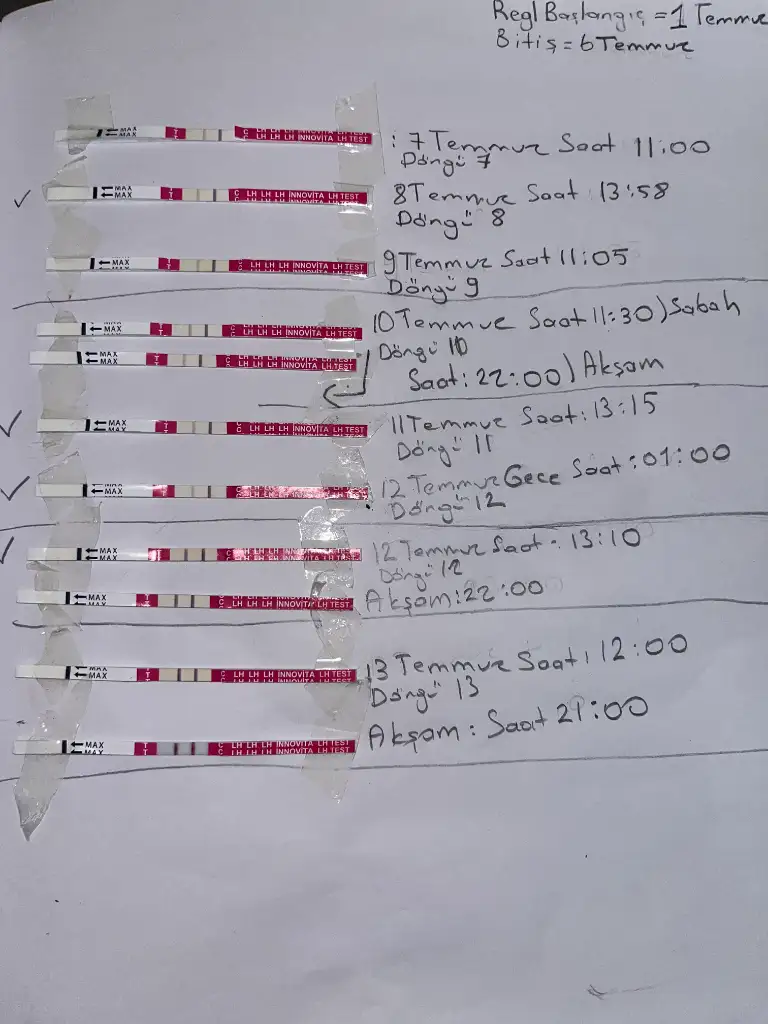 Regl Başlangıç = 1 Temmuz
Bitiş = 6 Temmuz
MAX MAX T T C LH LH LH INNOVİTA LH TEST
: 7 Temmuz Saat 11:00
Döngü 7
MAX MAX T T C LH LH LH INNOVİTA LH TEST
8 Temmuz Saat 13:58
Döngü 8
MAX T T C LH LH LH INNOVİTA LH TEST
9 Temmuz Saat 11:05
Döngü 9
MAX T T C LH LH LH INNOVİTA LH TEST
10 Temmuz Saat 11:30) Sabah
Döngü 10
MAX T T C LH LH LH INNOVİTA LH TEST
Saat: 22:00) Akşam
MAX T T C LH LH LH INNOVİTA LH TEST
11 Temmuz Saat: 13:15
Döngü 11
MAX T T C LH LH LH INNOVİTA LH TEST
12 Temmuz Gece Saat: 01:00
Döngü 12
MAX MAX T T C LH LH LH INNOVİTA LH TEST
12 Temmuz Saat: 13:10
Döngü 12
MAX T T C LH LH LH INNOVİTA LH TEST
Akşam: 22:00
MAX MAX T T C LH LH LH INNOVİTA LH TEST
13 Temmuz Saat: 12:00
Döngü 13
MAX MAX T T C LH LH LH INNOVİTA LH TEST
Akşam: Saat 21:00